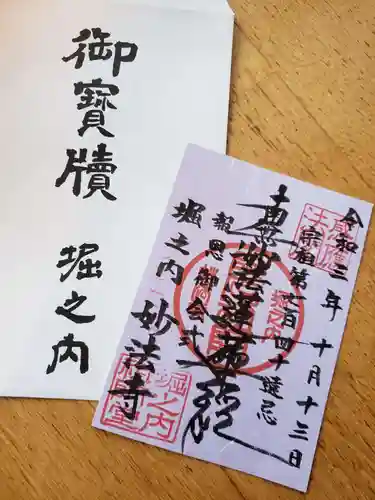 御寶牘
堀之内
令和三年十月十三日
宗祖第七百四十遠忌
南無妙法蓮華経
報恩御会式
堀之内
妙法寺
堀之内